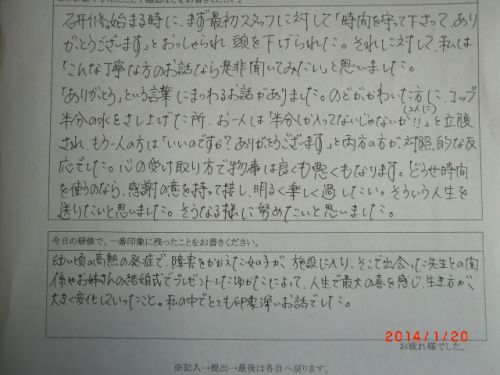 研修始まる時に、まず最初スタッフに対して「時間を守って下さって、あり
がとうございます」とおっしゃられ、頭を下げられた。それに対して、私は
「こんな丁寧な方のお話なら是非聞いてみたい」と思いました。
「ありがとう」という言葉にまつわるお話がありました。のどがかわいた方に、コップ
(2人に)
半分の水をさし上げた所、お一人は「半分しか入ってないじゃないか!!」と立腹
され、もう一人の方は「いいのですか?ありがとうございます」と両方の方が、対照的な反
応でした。心の受け取り方で物事は良くも悪くもなります。「どうせ時間
を使うのなら、感謝の意を持って接し、明るく楽しく過したい。そういう人生を
送りたいと思いました。そうなる様に努めたいと思いました。
今日の研修で、一番印象に残ったことをお書きください。
幼い頃の高熱の発症で、障害をかかえた女の子が、施設に入り、そこで出会った先生との関
係やお姉さんの結婚式でプレゼントしたゆかたによって、人生で最大の喜を感じ、生き方が
大きく変化していったこと。私の中でとても印象深いお話でした。
2014/1/20
お疲れ様でした。
※記入→提出→最後は各自へ戻ります。